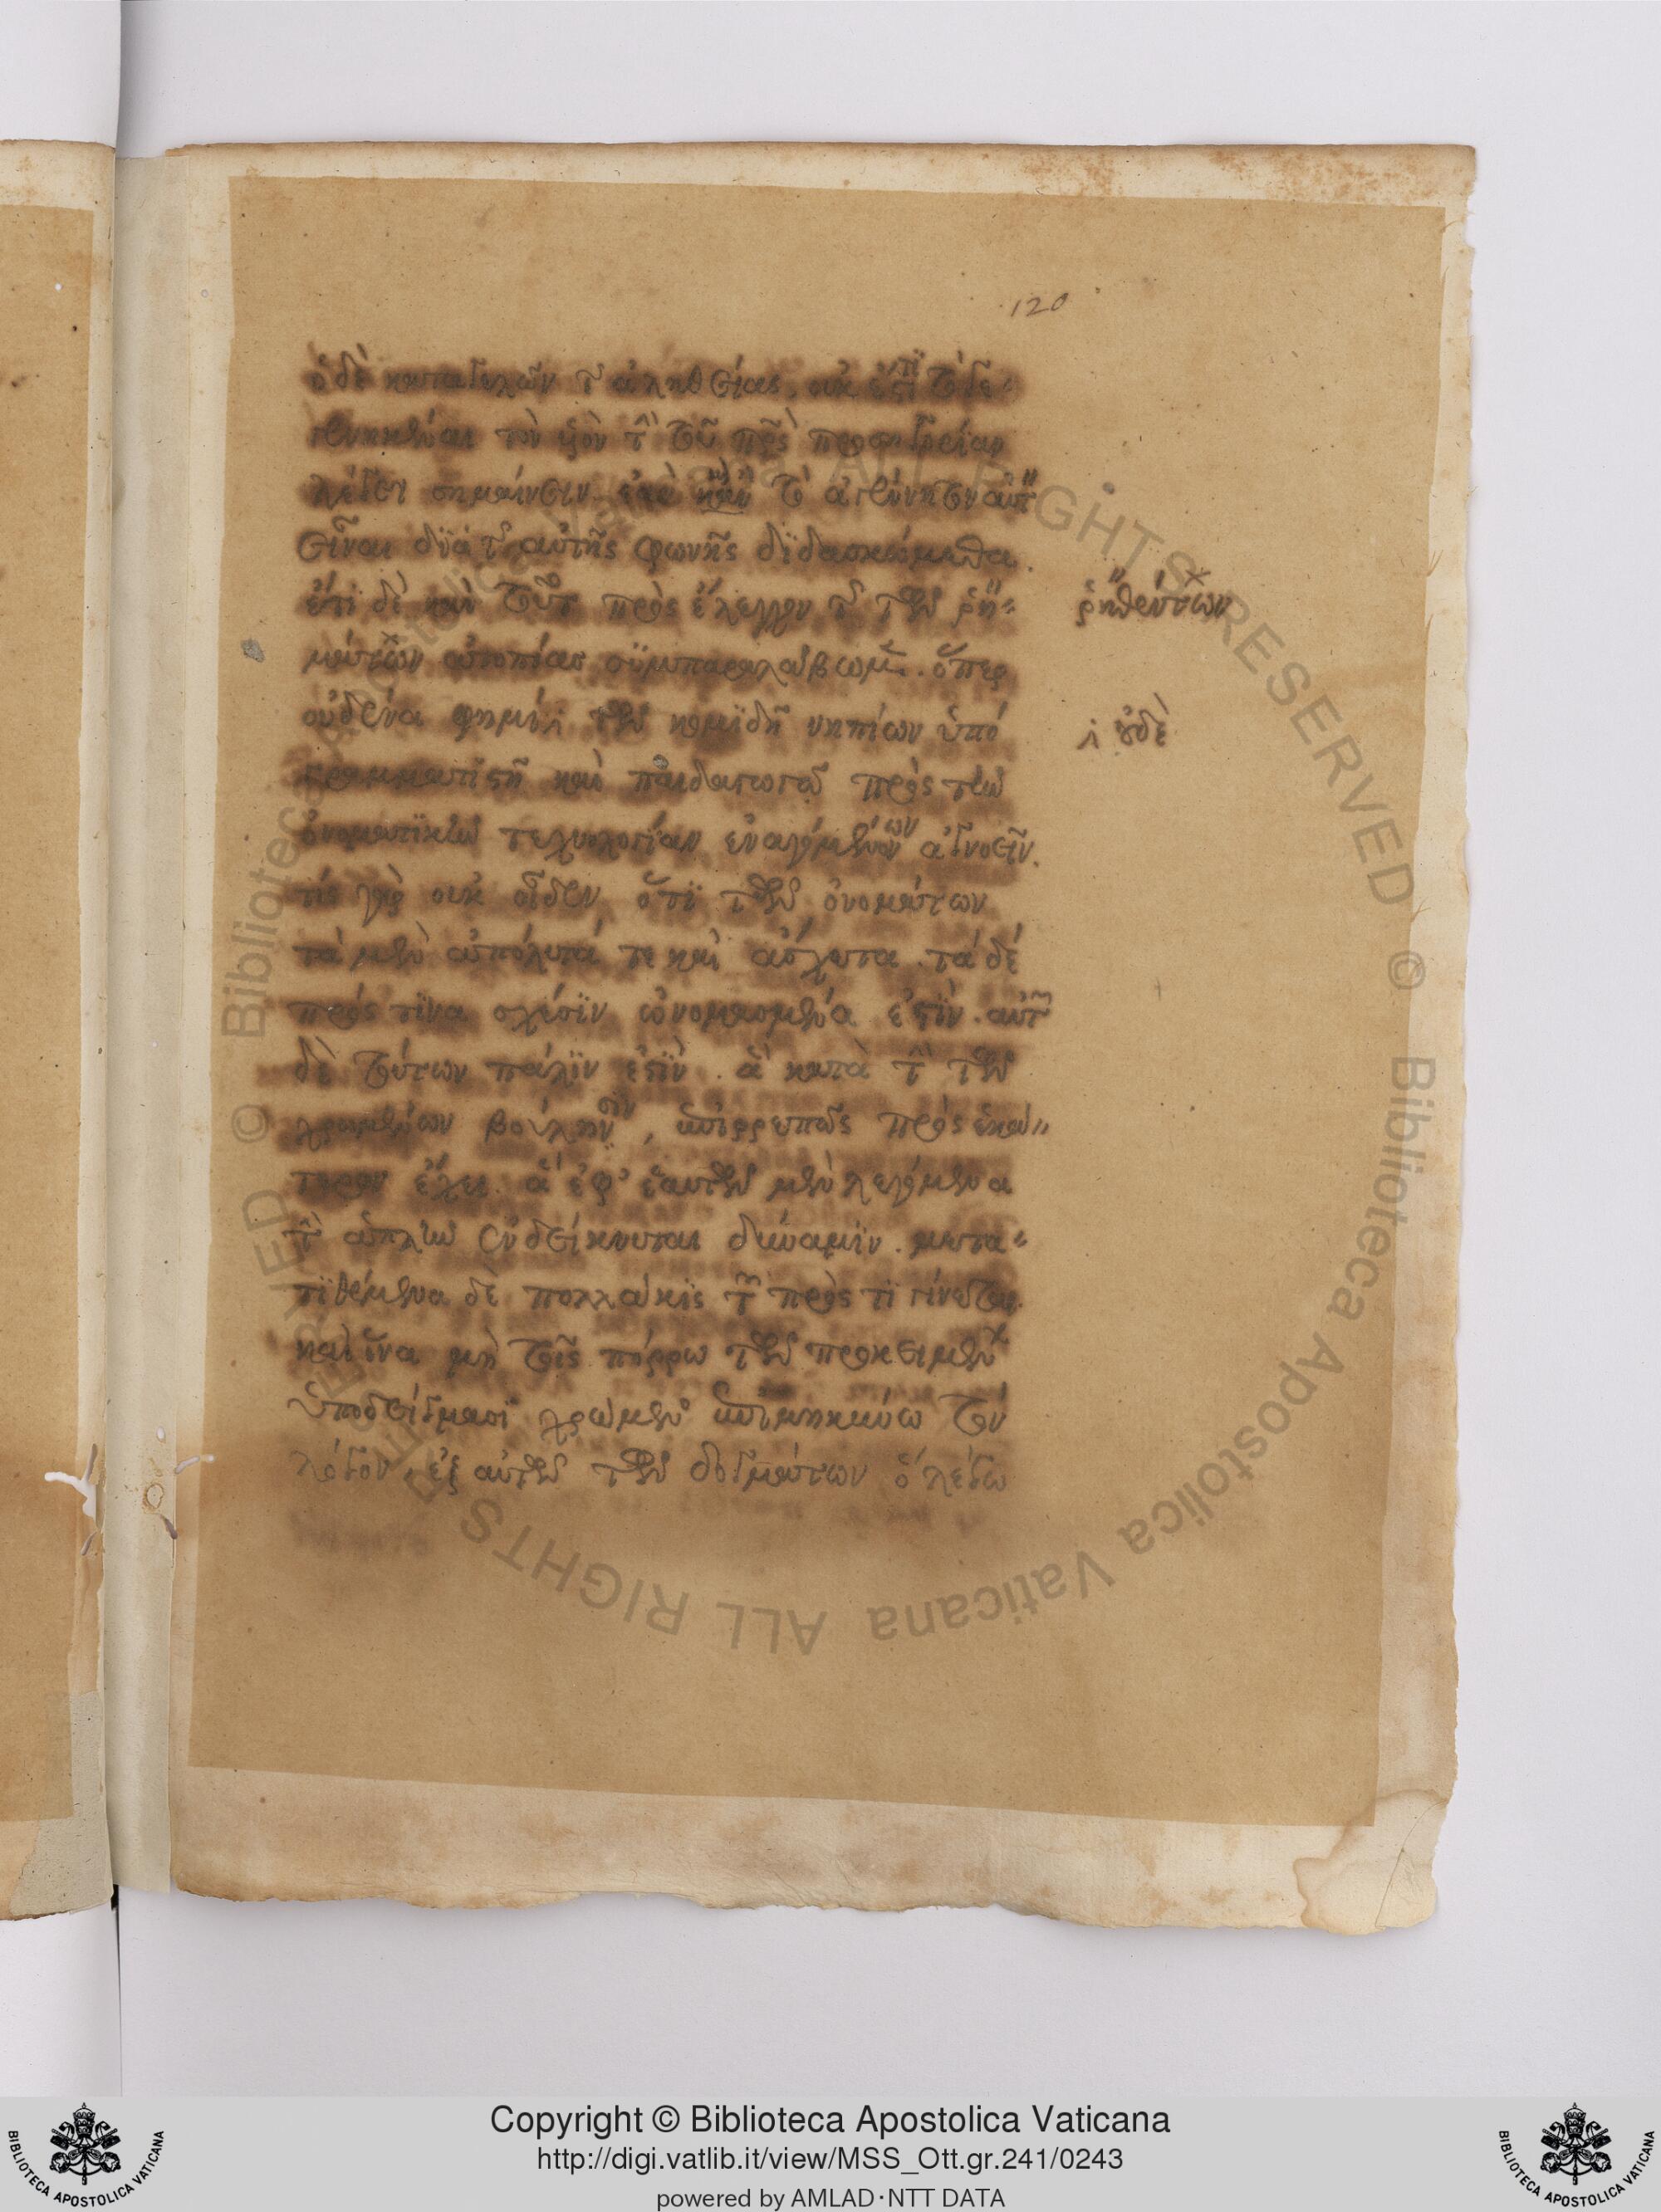 120
ὁ δὲ καταγελῶν τῆς ἀληθείας, οὐκ ἔτι τὸ γε-
γεννηκέναι τὸν υἱὸν τὴν τοῦ πρς προσηγορίαν
λέγει σημαίνειν τὸ ἀγέννητον αὐτὸν
εἶναι διὰ τῆς αὐτῆς φωνῆς διδασκώμεθα.
ἔτι δὲ καὶ τοῦτο πρὸς ἔλεγχον τῆς τῶν ῥη-
ῥηθέντων
μάτων ἀτοπίας συμπαραλάβωμεν. ὅπερ
οὐδένα φημὶ τῶν κομιδῆ νηπίων ὑπὸ
οὐδὲ
γραμματιστῆ καὶ παιδαγωγῶ πρὸς τὴν
ὀνοματικὴν τεχνολογίαν ἐναγόμενον ἀγνοεῖν.
τίς γὰρ οὐκ οἶδεν ὅτι τῶν ὀνομάτων
τὰ μὲν ἀπόλυτά τε καὶ ἄσχετα. τὰ δὲ
πρός τινα σχέσιν ὠνομασμένα ἐστίν. αὐτῶν
δὲ τούτων πάλιν ἐστὶν. ἃ κατὰ τὴν τῶν
χρωμένων βούλησιν, ἐπιρρεπῶς πρὸς ἑκά-
τερον ἔχει. ἃ ἐφ' ἑαυτῶν μὲν λεγόμενα
τὴν ἁπλῆν ἐνδείκνυται δύναμιν. μετα-
τιθέμενα δὲ πολλάκις τῶν πρὸς τι γίνεται.
καὶ ἵνα μὴ τοῖς πόρρω τῶν προκειμένων
ὑποδείγμασι χρώμενος ἐπιμηκύνω τὸν
λόγον, ἐξ αὐτῶν τῶν δογμάτων ὃ λέγω
Copyright © Biblioteca Apostolica Vaticana
http://digi.vatlib.it/view/MSS_Ott.gr.241/0243
powered by AMLAD·NTT DATA
BIBLIOTECA APOSTOLICA VATICANA
BIBLIOTECA APOSTOLICA VATICANA
© Biblioteca Apostolica Vaticana ALL RIGHTS RESERVED © Biblioteca Apostolica Vaticana ALL RIGHTS RESERVED